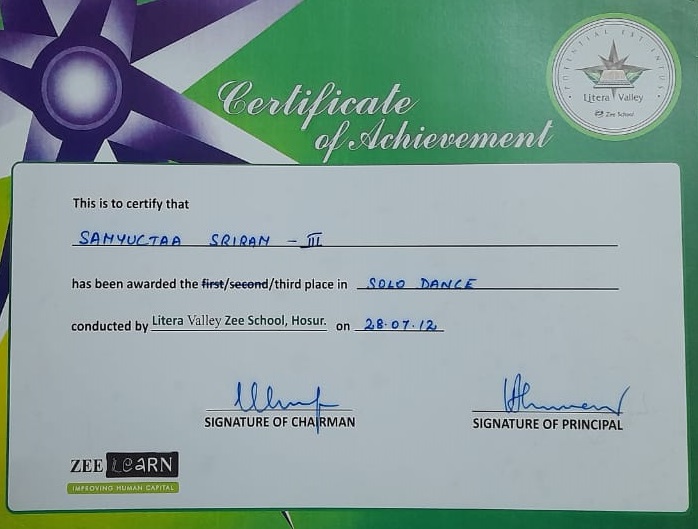 Certificate
of Achievement
POTENTIAL EST INTUS
Litera Valley
Zee School
This is to certify that
SAMYUCTAA SRIRAM - III
has been awarded the first/second/third place in SOLO DANCE
conducted by Litera Valley Zee School, Hosur. on 28.07.12
SIGNATURE OF CHAIRMAN
SIGNATURE OF PRINCIPAL
ZEE LeARN
IMPROVING HUMAN CAPITAL